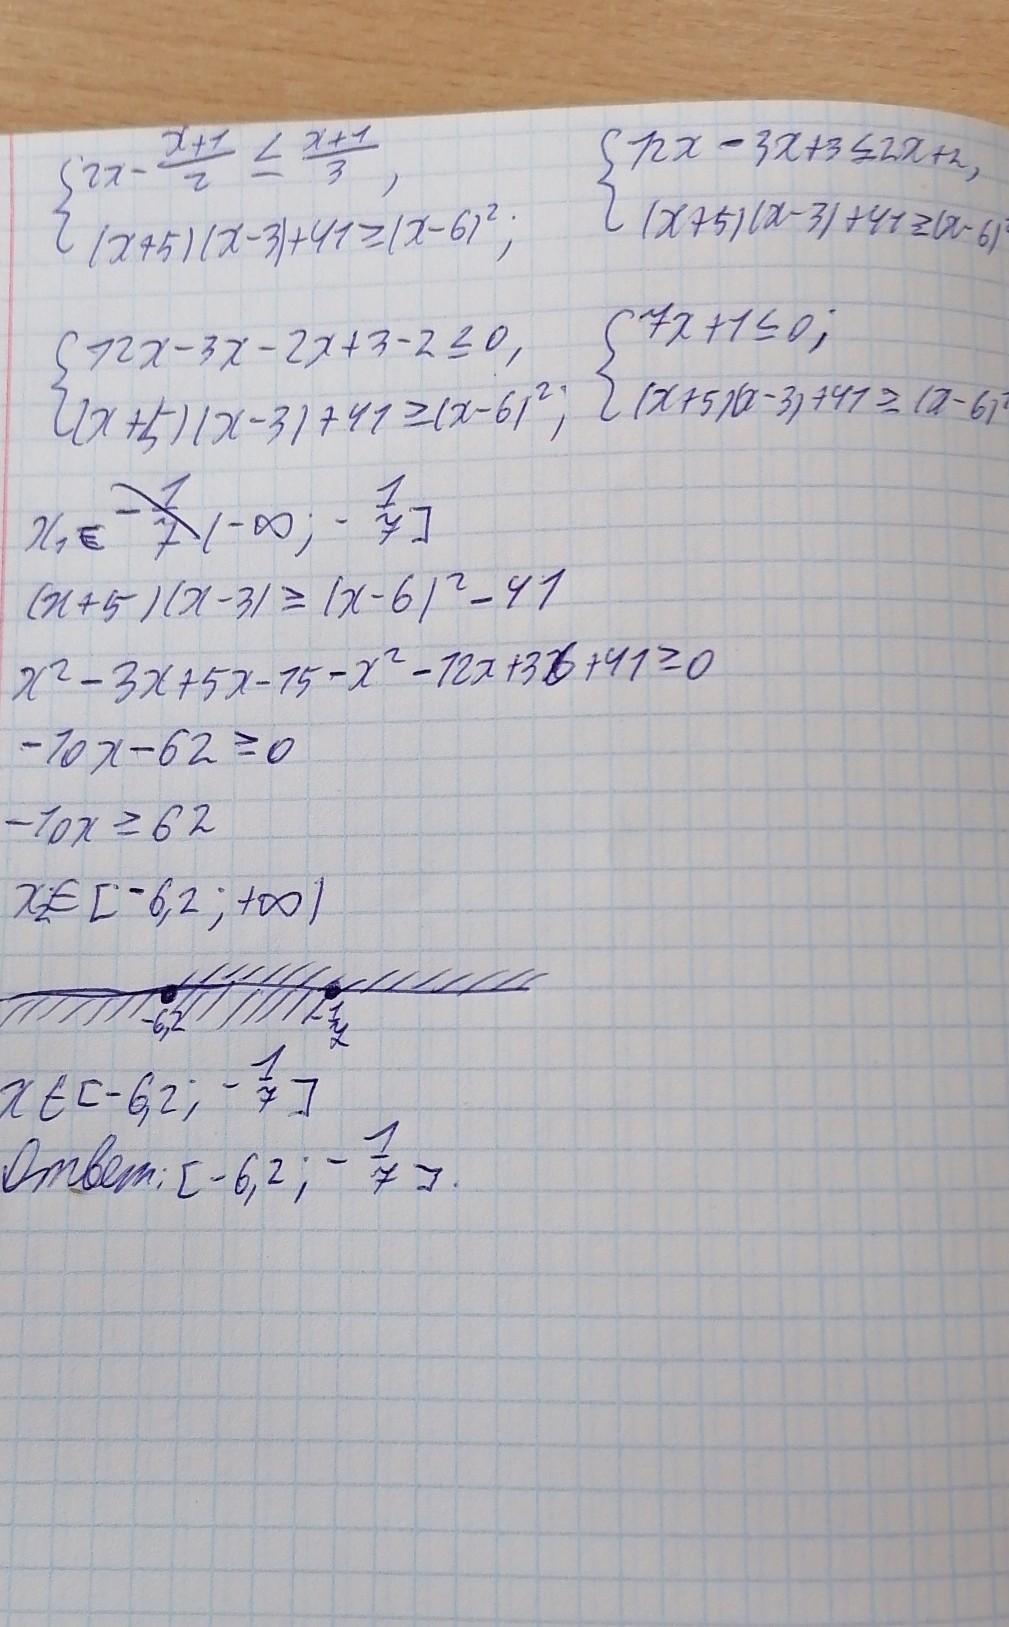 { 2x - (x+1)/2 ≤ (x+1)/3 ,
(x+5)(x-3)+41≥(x-6)²;
{ 12x - 3x+3≤2x+2,
(x+5)(x-3)+41≥(x-6)²
{ 12x-3x-2x+3-2≤0,
(x+5)(x-3)+41≥(x-6)²;
{ 7x+1≤0;
(x+5)(x-3)+41≥(x-6)²
x₁∈ (-∞; -1/7]
(x+5)(x-3)≥(x-6)²-41
x²-3x+5x-15-x²-12x+36+41≥0
-10x-62≥0
-10x≥62
x₂∈[-6,2;+∞)
-6,2 -1/7
x∈[-6,2; -1/7]
Ответ: [-6,2; -1/7].